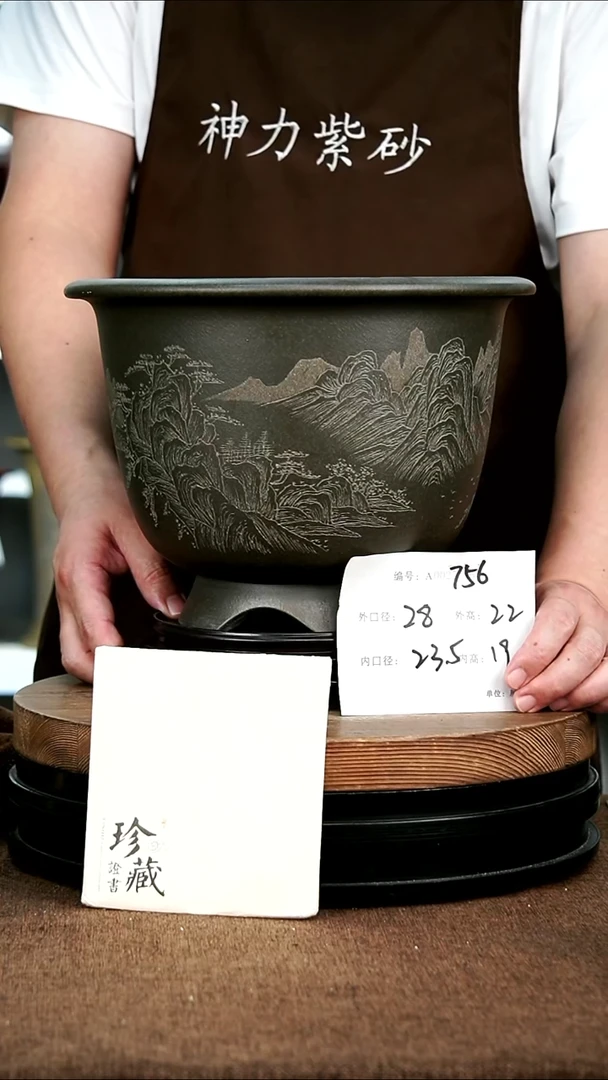 神力紫砂
编号: A 756
外口径: 28 外高: 22
内口径: 23.5 内高: 19
单位:
珍藏
證書